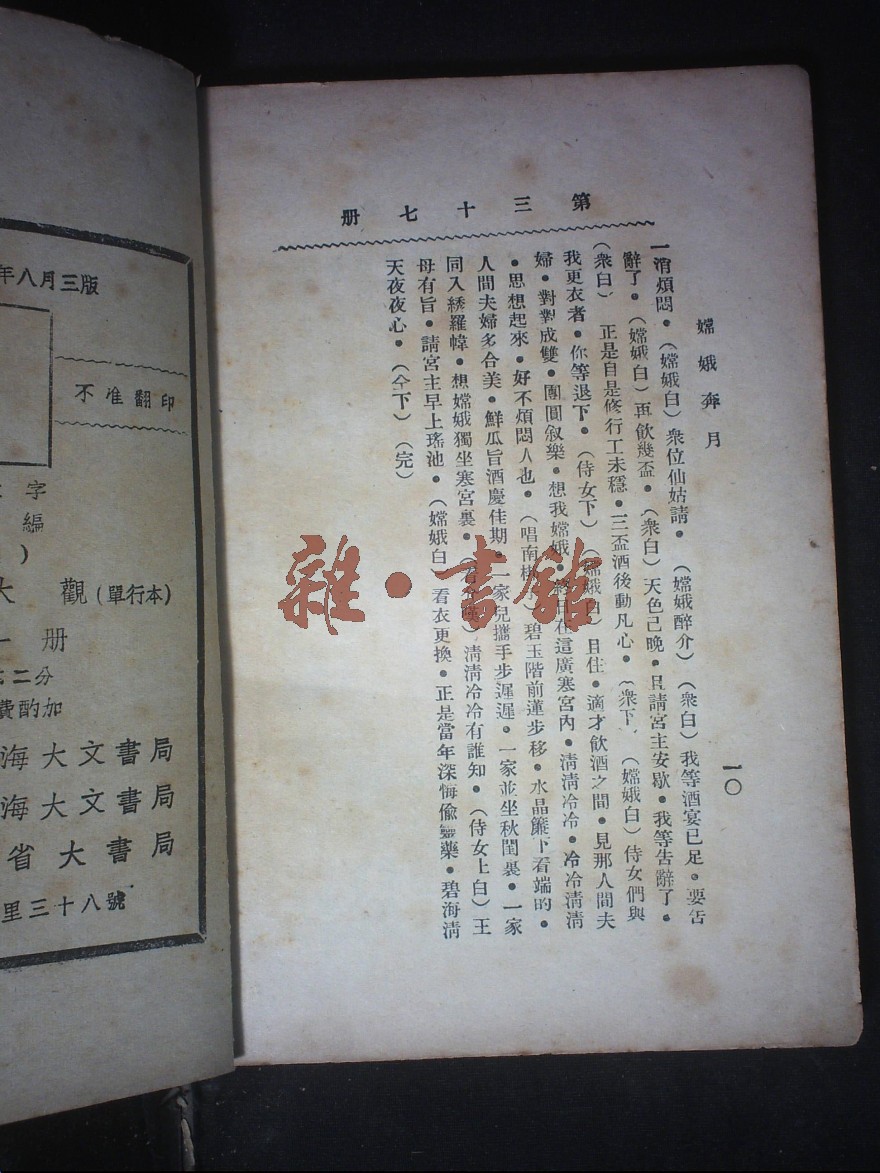 第三十七册
嫦娥奔月
一〇
一消煩悶•(嫦娥白)衆位仙姑請•(嫦娥醉介)(衆白)我等酒宴已足•要告
辭了•(嫦娥白)再飲幾盃•(衆白)天色己晚•且請宮主安歇•我等告辭了•
(衆白)正是自是修行工未穩•三盃酒後動凡心•(衆下)(嫦娥白)侍女們與
我更衣者•你等退下•(侍女下)(嫦娥白)且住•適才飲酒之間•見那人間夫
婦•對對成雙•團圓叙樂•想我嫦娥•終日在這廣寒宮內•清清冷冷•冷冷清清
•思想起來•好不煩悶人也•(唱南梆)碧玉階前蓮步移•水晶簾下看端的•
人間夫婦多合美•鮮瓜旨酒慶佳期•一家兒攜手步遲遲•一家並坐秋閨裏•一家
同入綉羅幃•想嫦娥獨坐寒宮裏•清清冷冷有誰知•(侍女上白)王
母有旨•請宮主早上瑤池•(嫦娥白)看衣更換•正是當年深悔偷靈藥•碧海清
天夜夜心•(仝下)(完)
雜·書館
年八月三版
不准翻印
字
編
)
大觀(單行本)
一册
二分
費酌加
海大文書局
海大文書局
省大書局
里三十八號